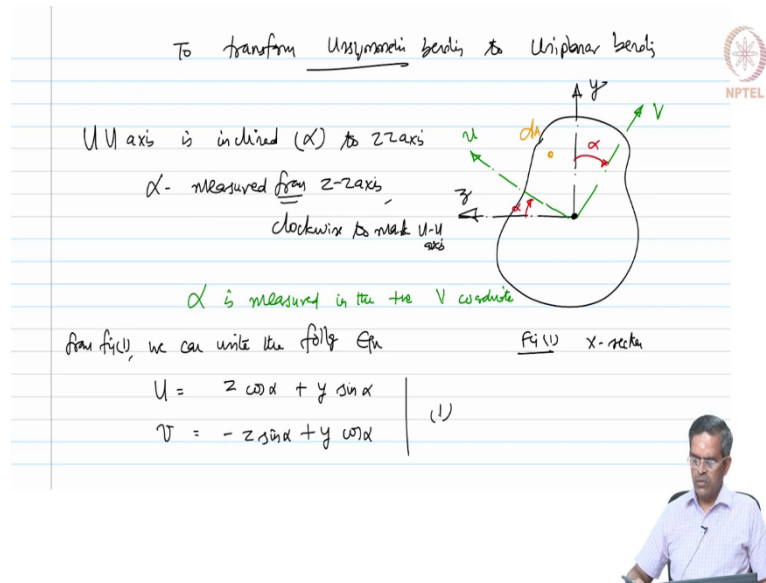 To transform Unsymmetri bending to Uniplanar bending
NPTEL
UU axis is inclined (α) to ZZ axis
α - measured from z-z axis,
clockwise to mark U-U
axis
y
V
u
dA
α
z
α
α is measured in the +ve V coordinate
from fig(1), we can write the follg Eqn
Fig (1) X-section
U = Z cosα + y sinα
V = - Z sinα + y cosα
(1)